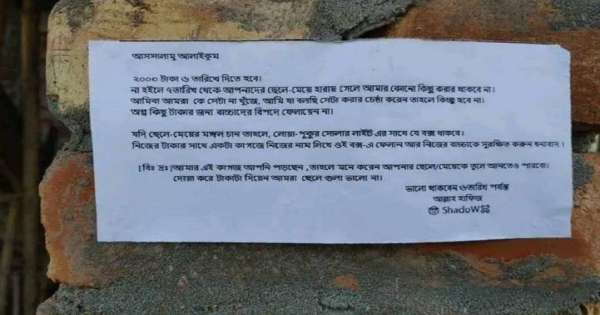 আসসালামু আলাইকুম
২০০০ টাকা ৬ তারিখে দিতে হবে।
না হইলে ৭তারিখ থেকে আপনাদের ছেলে-মেয়ে হারায় গেলে আমার কোনো কিছু করার থাকবে না।
আমি আমরা কে সেটা না খুঁজে, আমি যা বলছি সেটা করার চেষ্টা করেন তাহলে কিছু হবে না।
অল্প কিছু টাকার জন্য বাচ্চাদের বিপদে ফেলায়েন না।
যদি ছেলে-মেয়ের মঙ্গল চান তাহলে, লোয়া-পুকুর সোলার লাইট এর সাথে যে বক্স থাকবে।
নিজের টাকার সাথে একটা কাগজে নিজের নাম লিখে ওই বক্স-এ ফেলান আর নিজের বাচ্চাকে সুরক্ষিত করুন ধন্যবাদ।
[বিঃ দ্রঃ]আমার এই কাগজ আপনি পড়ছেন, তাহলে মনে করেন আপনার ছেলে/মেয়েকে তুলে আনতেও পারবো।
দোয়া করে টাকাটা দিয়েন আমরা ছেলে গুলা ভালো না।
ভালো থাকবেন ৬তারিখ পর্যন্ত
আল্লাহ হাফিজ
ShadoW